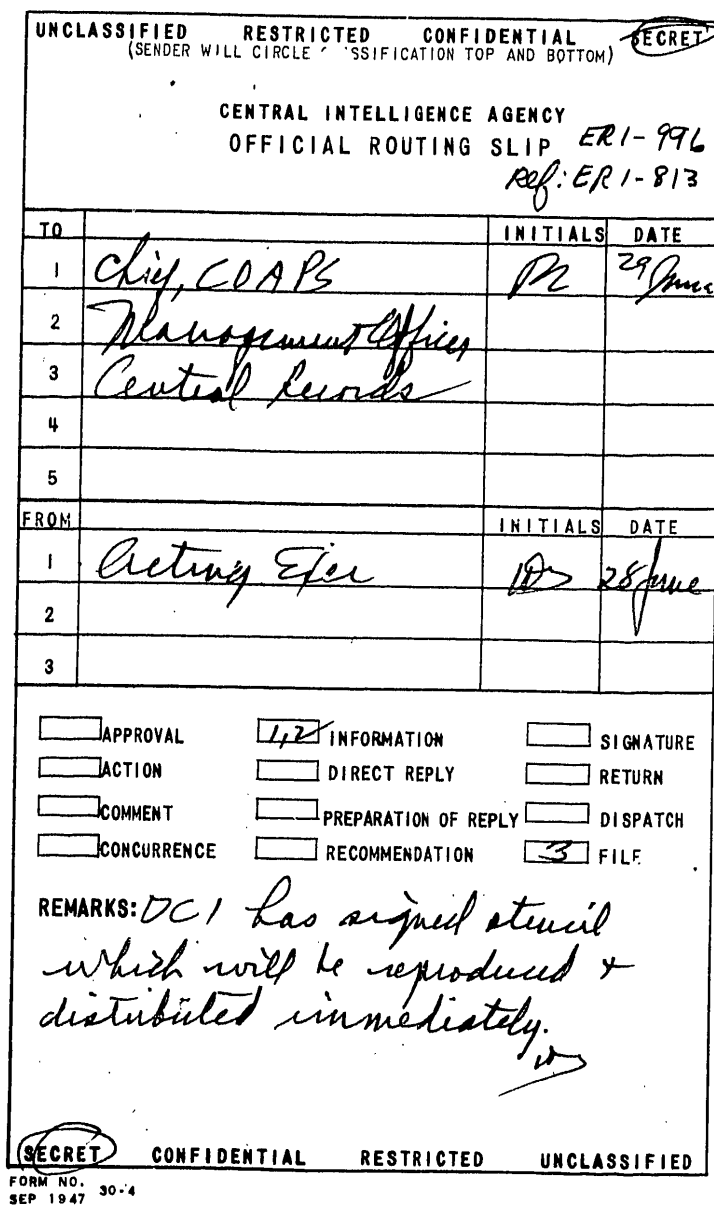 UNCLASSIFIED RESTRICTED CONFIDENTIAL SECRET
(SENDER WILL CIRCLE SSIFICATION TOP AND BOTTOM)
CENTRAL INTELLIGENCE AGENCY
OFFICIAL ROUTING SLIP ER 1-996
Ref: ER 1-813
TO INITIALS DATE
1 Chief, COAPS 29 June
2 Management Officer
3 Central Records
4
5
FROM INITIALS DATE
1 Acting Exec 28 June
2
3
APPROVAL 1,2 INFORMATION SIGNATURE
ACTION DIRECT REPLY RETURN
COMMENT PREPARATION OF REPLY DISPATCH
CONCURRENCE RECOMMENDATION 3 FILE
REMARKS: DCI has signed stencil
which will be reproduced +
distributed immediately.
SECRET CONFIDENTIAL RESTRICTED UNCLASSIFIED
FORM NO. 30-4
SEP 1947